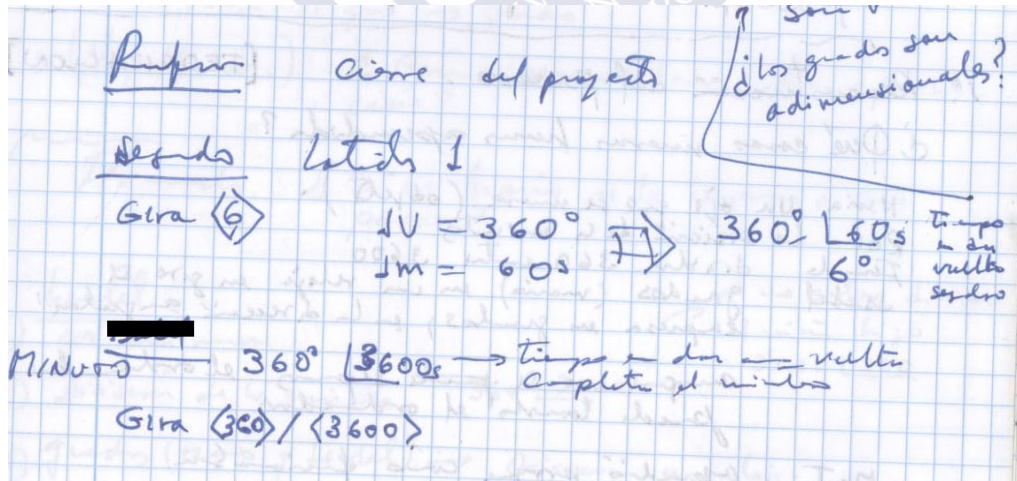 son
¿los grados son
adimensionales?
Cierre del proyecto
Segundo Latido 1
Gira <6>
1V = 360°
1m = 60s
360° 60s
6°
Tiempo
en dar
vuelta
segundo
MINUTO 360° 3600s → tiempo en dar una vuelta
completa el minutero
Gira <360>/<3600>